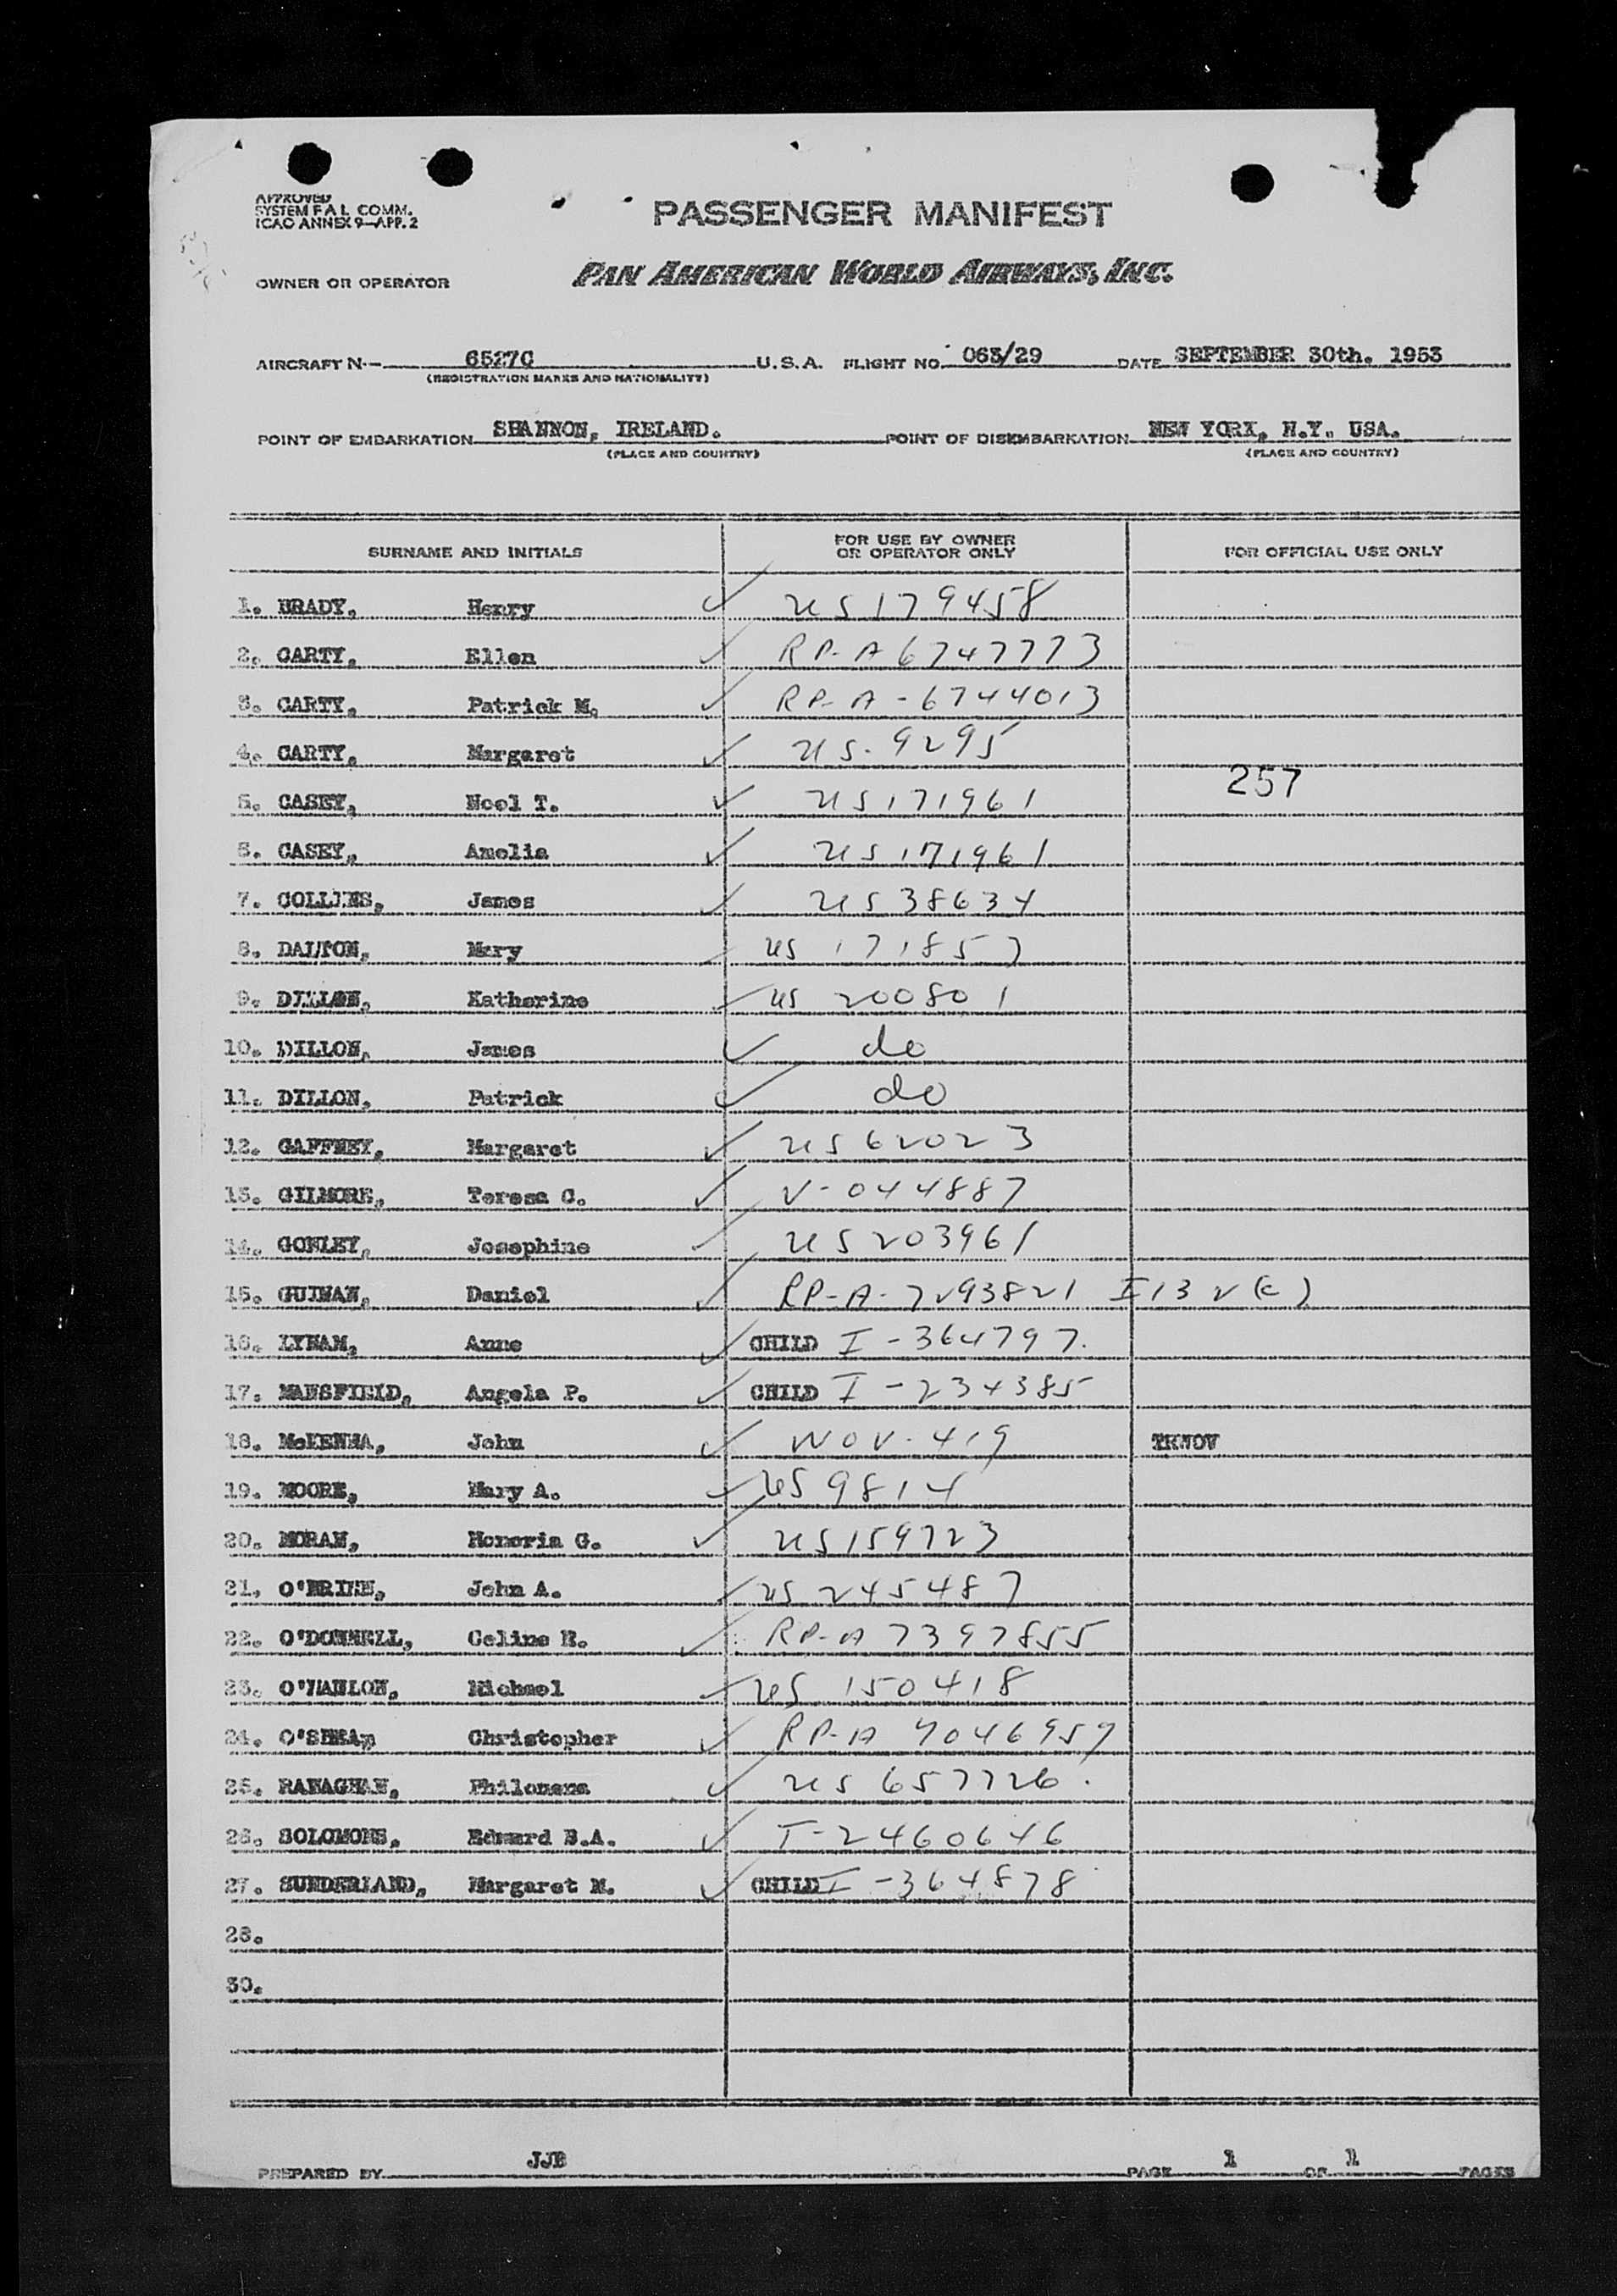 APPROVED
SYSTEM F A L COMM.
ICAO ANNEX 9—APP. 2
PASSENGER MANIFEST
OWNER OR OPERATOR PAN AMERICAN WORLD AIRWAYS, INC.
AIRCRAFT N- 6527C U.S.A. FLIGHT NO. 063/29 DATE SEPTEMBER 30th. 1953
(REGISTRATION MARKS AND NATIONALITY)
POINT OF EMBARKATION SHANNON, IRELAND. POINT OF DISEMBARKATION NEW YORK, N.Y. USA.
(PLACE AND COUNTRY) (PLACE AND COUNTRY)
SURNAME AND INITIALS FOR USE BY OWNER OR OPERATOR ONLY FOR OFFICIAL USE ONLY
1. BRADY, Henry ✓ US 179458
2. CARTY, Ellen ✓ RP-A 6747773
3. CARTY, Patrick M. ✓ RP-A-6744013
4. CARTY, Margaret ✓ US-9295
257
5. CASEY, Noel T. ✓ US 171961
6. CASEY, Amelia ✓ US 171961
7. COLLINS, James ✓ US 38634
8. DALTON, Mary ✓ US 171857
9. DILLON, Katherine ✓ US 200801
10. DILLON, James ✓ do
11. DILLON, Patrick ✓ do
12. GAFFNEY, Margaret ✓ US 62023
13. GILMORE, Teresa C. ✓ V-044887
14. GORLEY, Josephine ✓ US 203961
15. GUINAN, Daniel ✓ RP-A-7293821 I 132(c)
16. LYNAM, Anne ✓ CHILD I-364797.
17. MANSFIELD, Angela P. ✓ CHILD I-234385
18. McKENNA, John ✓ WOV-419 TRWOV
19. MOORE, Mary A. ✓ US 9814
20. MORAN, Honoria G. ✓ US 159723
21. O'BRIEN, John A. ✓ US 245487
22. O'DONNELL, Celine R. ✓ RP-A 7397855
23. O'HANLON, Michael ✓ US 150418
24. O'SHEA, Christopher ✓ RP-A 7046957
25. RANAGHAN, Philomena ✓ US 657726.
26. SOLOMONS, Edward B.A. ✓ I-2460646
27. SUNDERLAND, Margaret M. ✓ CHILD I-364878
28.
30.
PREPARED BY JJB PAGE 1 OF 1 PAGES